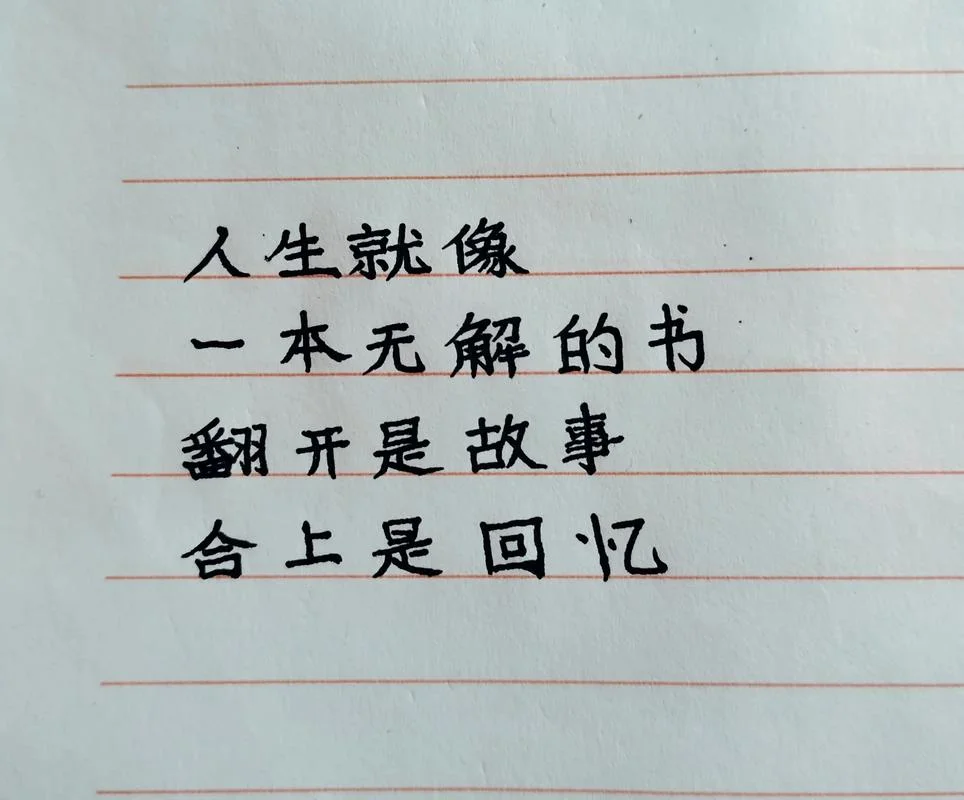 人生就像
一本无解的书
翻开是故事
合上是回忆